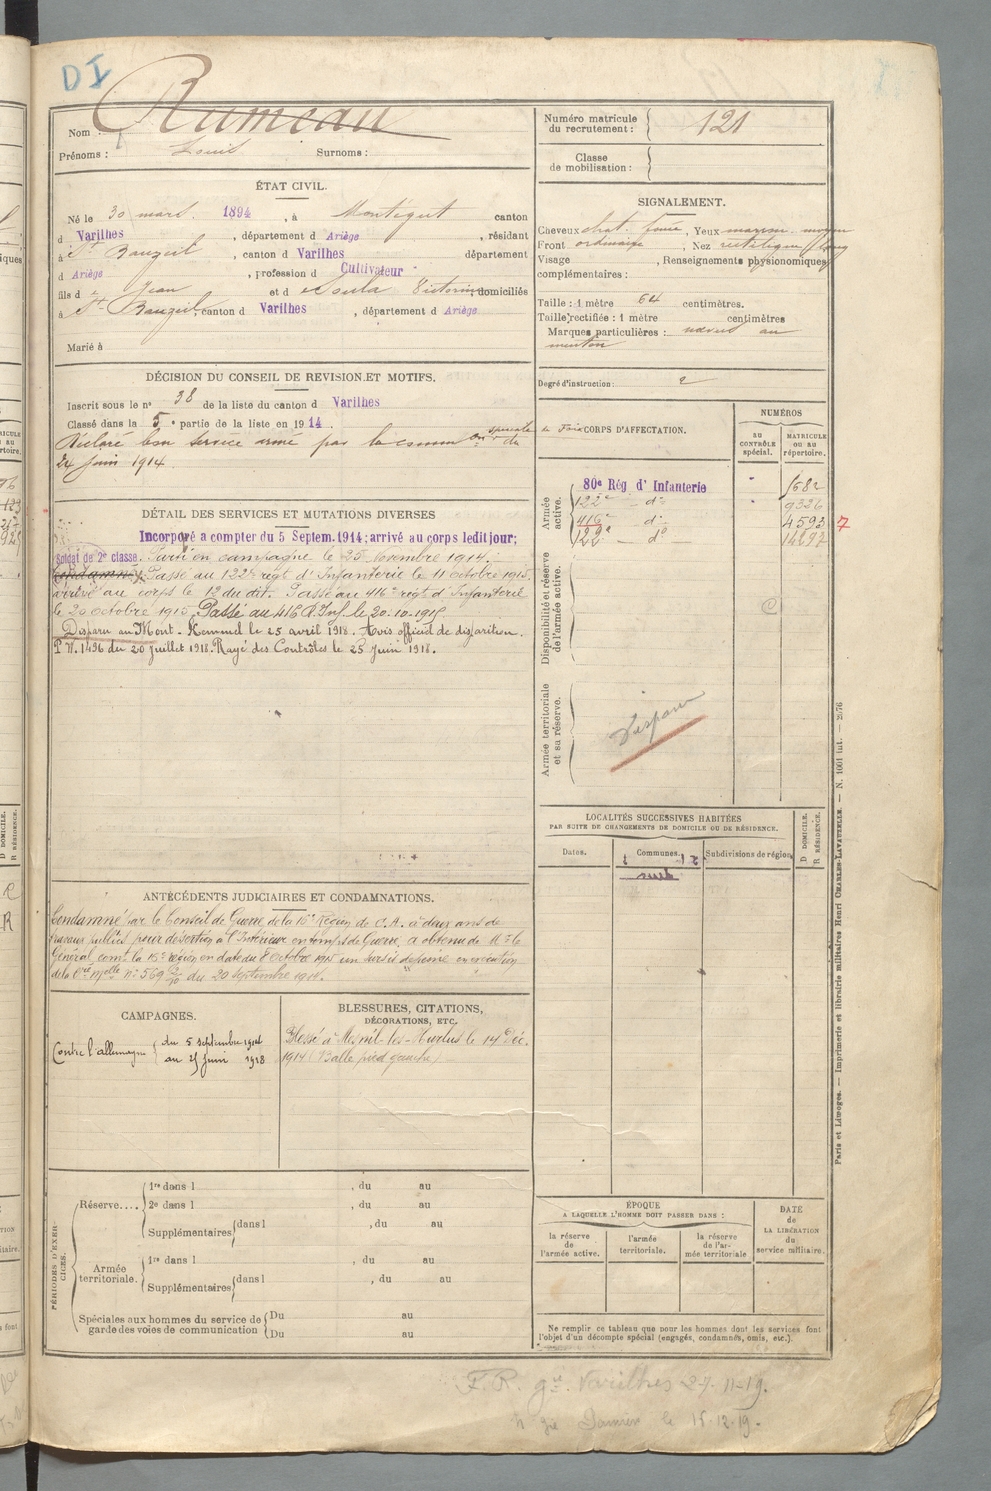 DI
Nom : Rumeau
Prénoms : Louis Surnoms :
Numéro matricule du recrutement : 121
Classe de mobilisation :
ÉTAT CIVIL.
Né le 30 mars 1894, à Montégut canton
d Varilhes, département d Ariège, résidant
à St Bauzeil, canton d Varilhes département
d Ariège, profession d Cultivateur
fils d e Jean et d e Soula Victorine, domiciliés
à St Bauzeil canton d Varilhes, département d Ariège
Marié à
SIGNALEMENT.
Cheveux chat. foncé, Yeux marron moyen
Front ordinaire, Nez rectiligne long
Visage , Renseignements physionomiques
complémentaires :
Taille : 1 mètre 64 centimètres.
Taille rectifiée : 1 mètre centimètres
Marques particulières : au
menton
Degré d'instruction : 2
DÉCISION DU CONSEIL DE REVISION ET MOTIFS.
Inscrit sous le n° 38 de la liste du canton d Varilhes
Classé dans la 5e partie de la liste en 1914.
Déclaré bon service armé par la common spéciale de Foix du
24 juin 1914.
CORPS D'AFFECTATION.
NUMÉROS
AU CONTRÔLE spécial.
MATRICULE OU AU répertoire.
Armée active.
80e Rég d'Infanterie " 1682
122e d° " 9326
416e d° 4593 7
122e d° 14297
Disponibilité et réserve de l'armée active.
C
Armée territoriale et sa réserve.
Disparu
DÉTAIL DES SERVICES ET MUTATIONS DIVERSES
Incorporé a compter du 5 Septem. 1914; arrivé au corps ledit jour;
Soldat de 2e classe. Parti en campagne le 25 novembre 1914.
Condamné Passé au 122e régt d'Infanterie le 11 octobre 1915
arrivé au corps le 12 du dit. Passé au 416e régt d'Infanterie
le 20 octobre 1915. Passé au 416 R. Inf. le 20-10-1915
Disparu au Mont-Kemmel le 25 avril 1918. Avis officiel de disparition.
P N. 1496 du 20 juillet 1918. Rayé des Contrôles le 25 Juin 1918.
LOCALITÉS SUCCESSIVES HABITÉES
PAR SUITE DE CHANGEMENTS DE DOMICILE OU DE RÉSIDENCE.
Dates.
Communes.
Subdivisions de région
D DOMICILE.
R RÉSIDENCE.
ANTÉCÉDENTS JUDICIAIRES ET CONDAMNATIONS.
Condamné par le Conseil de Guerre de la 16e Région de C.A. à deux ans de
travaux publics pour désertion à l'Intérieur en temps de Guerre, a obtenu de Mr le
Général comt la 16e région en date du 8 octobre 1915 un sursis de peine en exécution
de la Cre Mlle n° 569 du 20 septembre 1915.
CAMPAGNES.
Contre l'allemagne { du 5 septembre 1914
au 25 Juin 1918
BLESSURES, CITATIONS,
DÉCORATIONS, ETC.
Blessé à Mesnil-les-Hurlus le 14 Déc.
1914 (Balle pied gauche)
PÉRIODES D'EXERCICES.
Réserve....
1re dans l , du au
2e dans l , du au
Supplémentaires { dans l , du au
Armée territoriale.
1re dans l , du au
Supplémentaires { dans l , du au
Spéciales aux hommes du service de garde des voies de communication
Du au
Du au
ÉPOQUE
A LAQUELLE L'HOMME DOIT PASSER DANS :
la réserve de l'armée active.
l'armée territoriale.
la réserve de l'armée territoriale
DATE de LA LIBÉRATION du service militaire.
Ne remplir ce tableau que pour les hommes dont les services font
l'objet d'un décompte spécial (engagés, condamnés, omis, etc.).
Paris et Limoges. — Imprimerie et librairie militaires Henri CHARLES-LAVAUZELLE. — N. 1001 int. — 2876
F. R. gie Varilhes 27-11-19.
le 15.12.19.